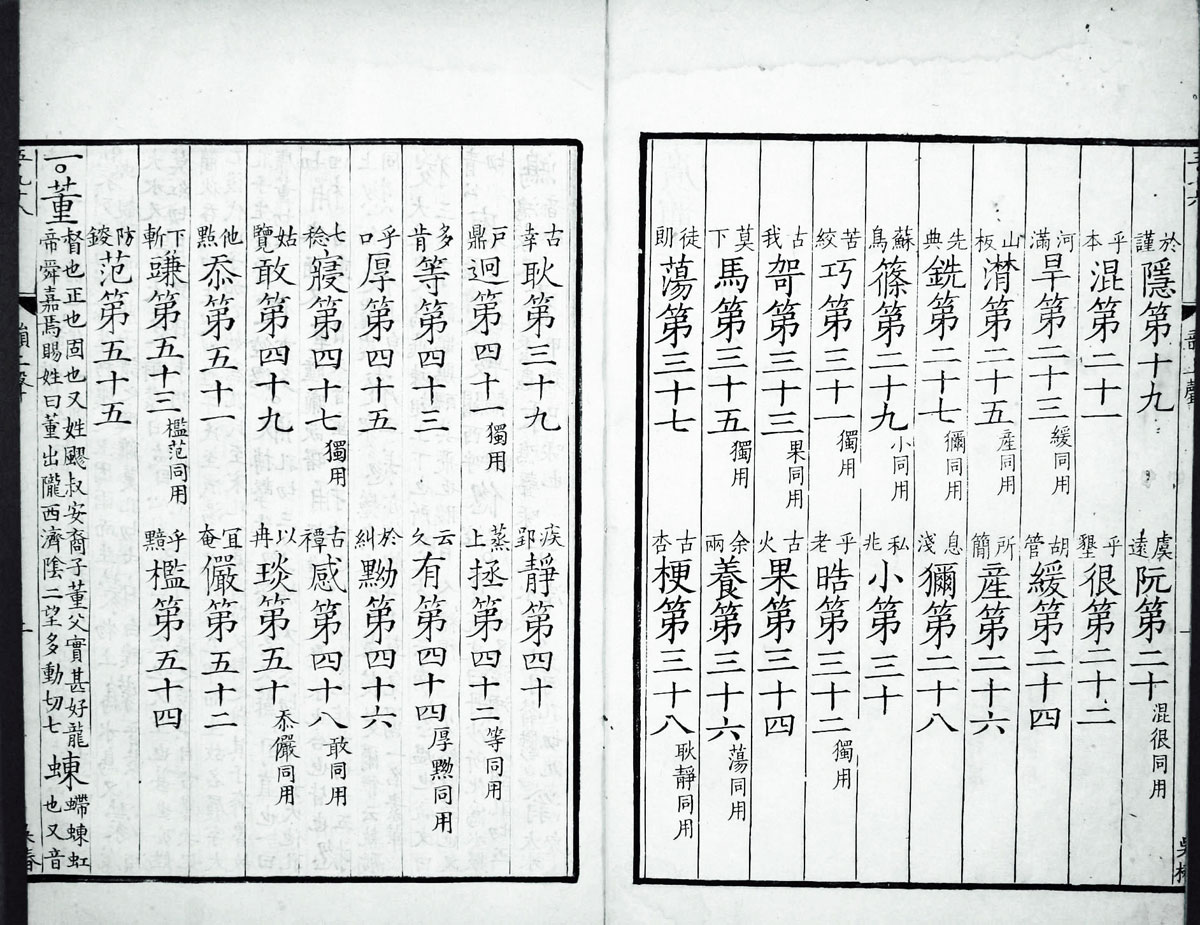 於謹隱第十九 虞遠阮第二十混很同用
乎本混第二十一 乎墾很第二十二
河滿旱第二十三緩同用 胡管緩第二十四
山板潸第二十五產同用 所簡產第二十六
先典銑第二十七獮同用 息淺獮第二十八
蘇鳥篠第二十九小同用 私兆小第三十
苦絞巧第三十一獨用 乎老晧第三十二獨用
古我哿第三十三果同用 古火果第三十四
莫下馬第三十五獨用 余兩養第三十六蕩同用
徒朗蕩第三十七 古杏梗第三十八耿靜同用
古幸耿第三十九 疾郢靜第四十
戶鼎迥第四十一獨用 蒸上拯第四十二等同用
多肯等第四十三 云久有第四十四厚黝同用
乎口厚第四十五 於糾黝第四十六
七稔寢第四十七獨用 古禫感第四十八敢同用
姑覽敢第四十九 以冉琰第五十忝儼同用
他點忝第五十一 宜奄儼第五十二
下斬豏第五十三檻范同用 乎黤檻第五十四
防錽范第五十五
一董督也正也固也又姓颷叔安裔子董父實甚好龍帝舜嘉焉賜姓曰董出隴西濟陰二望多動切七蝀螮蝀虹也又音